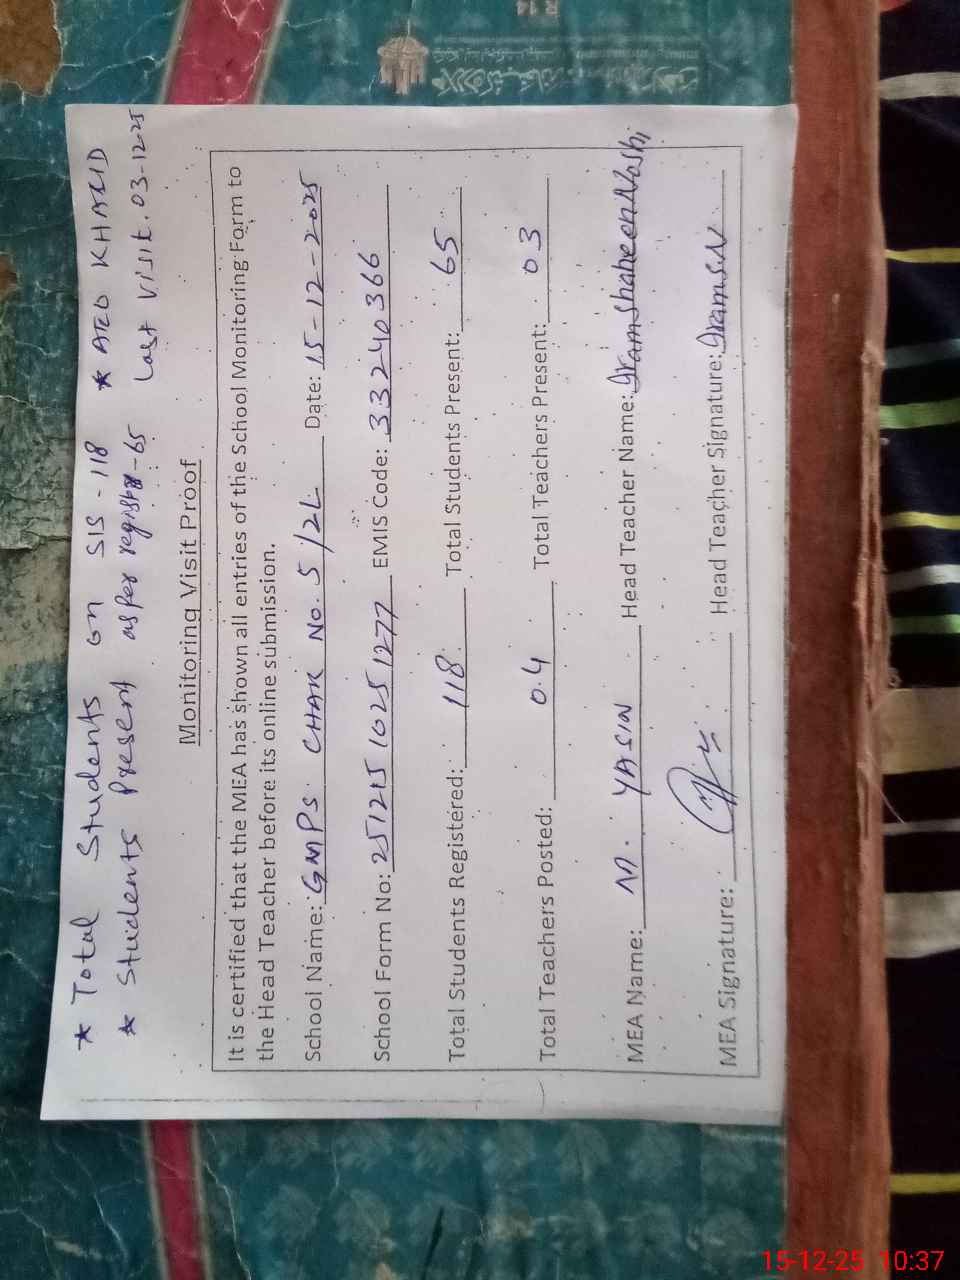 * Total Students on SIS - 118 * AEO KHALID
* Students Present as per register - 65 Last Visit. 03-12-25
Monitoring Visit Proof
It is certified that the MEA has shown all entries of the School Monitoring Form to
the Head Teacher before its online submission.
School Name: GMPS CHAK No. 5/2L Date: 15-12-2025
School Form No: EMIS Code: 33240366
Total Students Registered: 118 Total Students Present: 65
Total Teachers Posted: 04 Total Teachers Present: 03
MEA Name: M. YASIN Head Teacher Name: Iram Shaheen
MEA Signature: Head Teacher Signature: Iram S.N
R 14
15-12-25 10:37